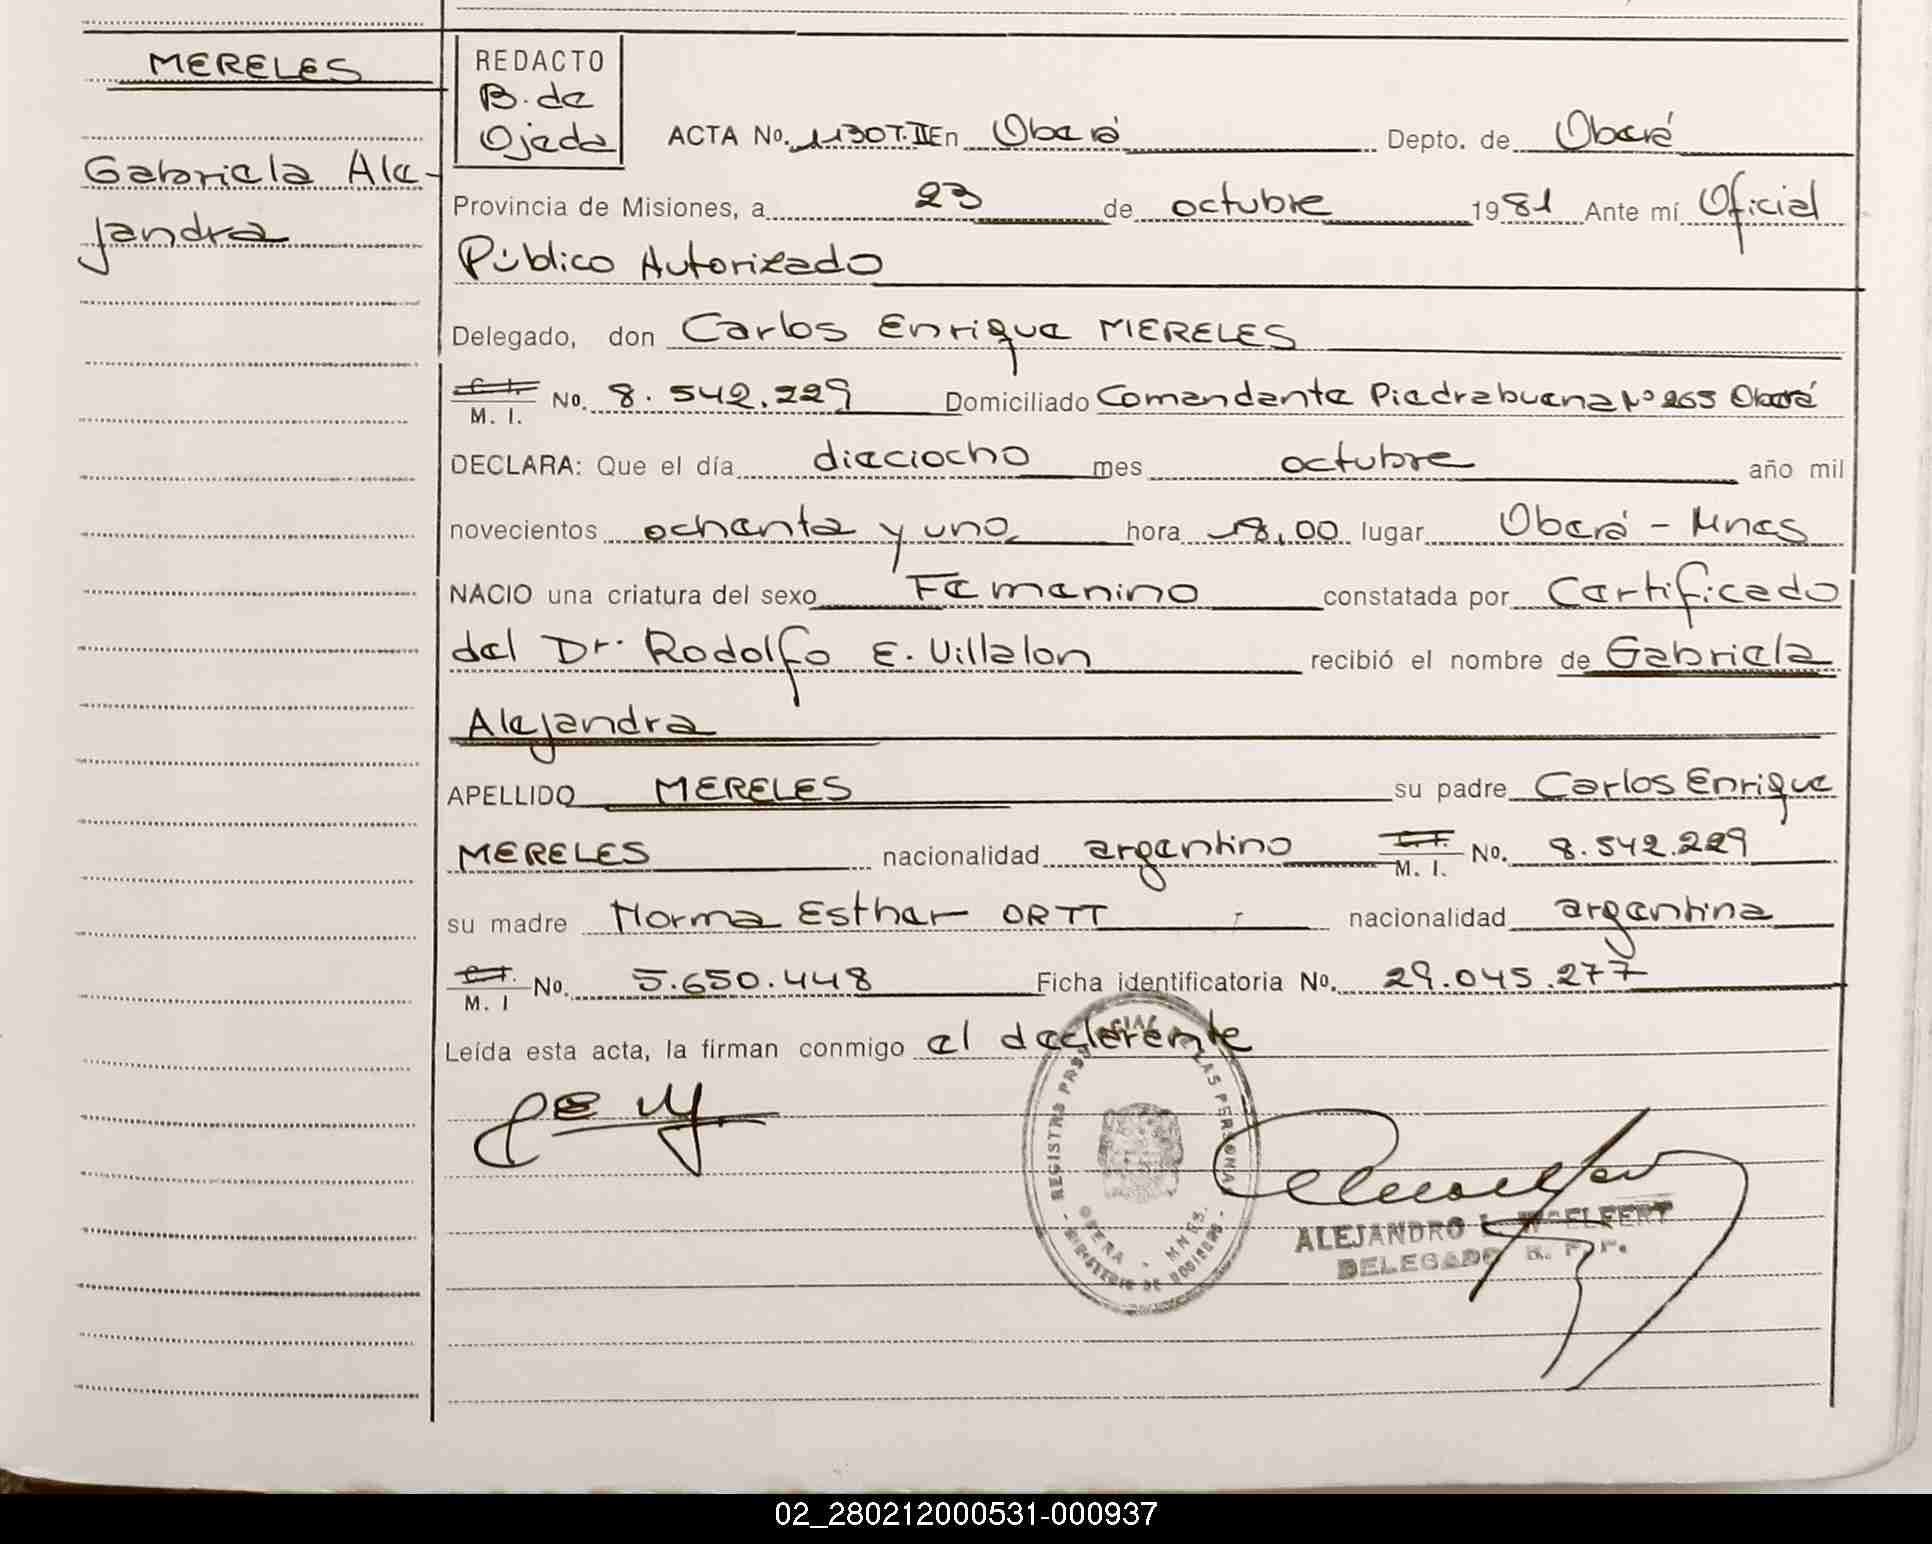 MERELES
Gabriela Ale-
jandra
REDACTO
B. de
Ojeda
ACTA No. 1130T.II En Oberá Depto. de Oberá
Provincia de Misiones, a 23 de octubre 1981 Ante mí Oficial
Público Autorizado
Delegado, don Carlos Enrique MERELES
C. I. M. I. No. 8.542.229 Domiciliado Comandante Piedrabuena Nº 265 Oberá
DECLARA: Que el día dieciocho mes octubre año mil
novecientos ochenta y uno hora 18,00 lugar Oberá - Mnes
NACIO una criatura del sexo Femenino constatada por Certificado
del Dr. Rodolfo E. Villalon recibió el nombre de Gabriela
Alejandra
APELLIDO MERELES su padre Carlos Enrique
MERELES nacionalidad argentino C. I. M. I. No. 8.542.229
su madre Norma Esther ORTT nacionalidad argentina
C. I. M. I No. 5.650.448 Ficha identificatoria No. 29.045.277
Leída esta acta, la firman conmigo el declarente
REGISTRO PROVINCIAL LAS PERSONAS
OBERA - MNES.
- MINISTERIO DE GOBIERNO -
ALEJANDRO L. WOELFERT
DELEGADO R. P. P.
02_280212000531-000937